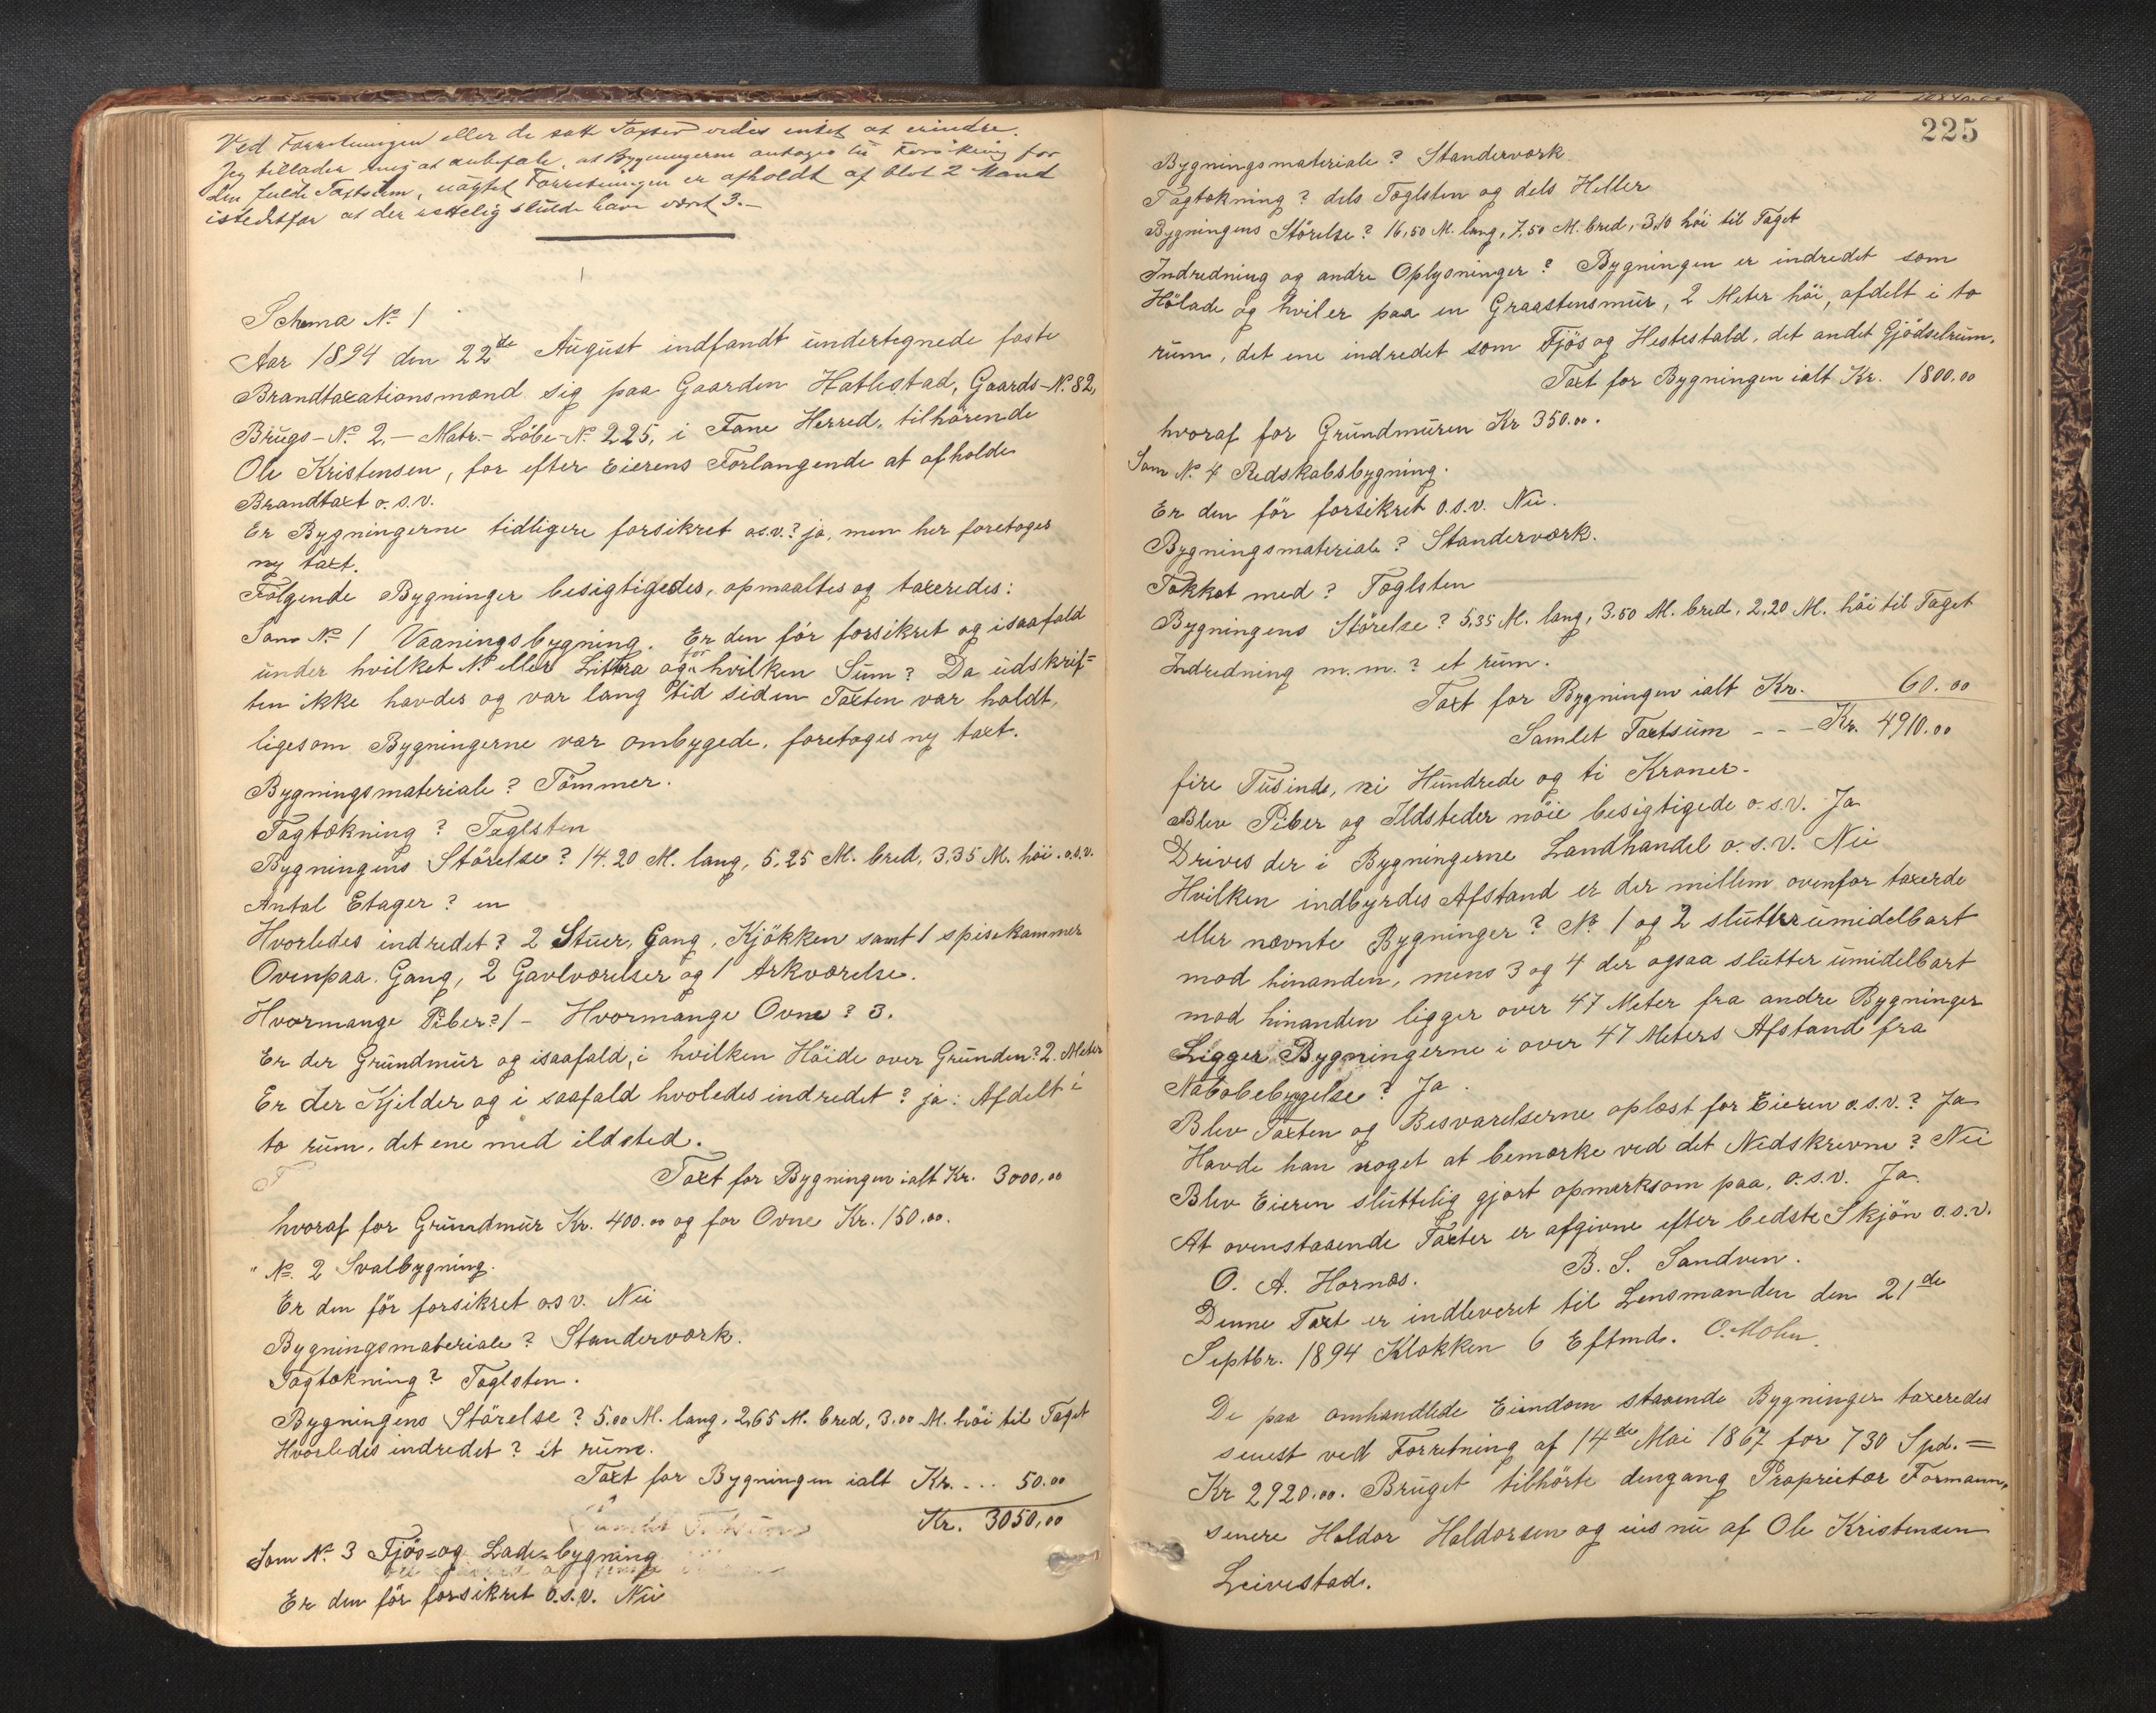 Ved Forretningen eller de satte Taxter vides intet at erindre.
Jeg tillader mig at anbefale, at Bygningerne antages til Forsikring for
den fulde Taxtsum, uagtet Forretningen er afholdt af blot 2 Mand
istedetfor at der rettelig skulde have været 3.—
Schema No 1
Aar 1894 den 22de August indfandt undertegnede faste
Brandtaxationsmænd sig paa Gaarden Hatlestad, Gaards-No. 82,
Brugs-No. 2,— Matr.-Löbe-No. 225, i Fane Herred, tilhörende
Ole Kristensen, for efter Eierens Forlangende at afholde
Brandtaxt o.s.v.
Er Bygningerne tidligere forsikret o.s.v.? ja, men her foretoges
ny taxt.
Fölgende Bygninger besigtigedes, opmaaltes og taxeredes:
Som No 1 Vaaningsbygning. Er den för forsikret og isaafald
under hvilket No eller Littra og for hvilken Sum? Da udskrif=
ten ikke havdes og var lang tid siden Taxten var holdt,
ligesom Bygningerne var ombygede, foretoges ny taxt.
Bygningsmateriale? Tömmer.
Tagtækning? Taglsten
Bygningens Störelse? 14.20 M. lang, 5,25 M. bred, 3,35 M. höi. o.s.v.
Antal Etager? en
Hvorledes indredet? 2 Stuer, Gang, Kjökken samt 1 spisekammer
Ovenpaa. Gang, 2 Gavlværelser og 1 Arkværelse.
Hvormange Piber? 1 — Hvormange Ovne? 3.
Er der Grundmur og isaafald, i hvilken Höide over Grunden? 2. Meter
Er der Kjelder og i saafald hvoledes indredet? ja: Afdelt i
to rum, det ene med ildsted.
Taxt for Bygningen ialt Kr. 3000,00
hvoraf for Grundmur Kr. 400.00 og for Ovne Kr. 150,00.
" No. 2 Svalbygning.
Er den för forsikret o.s.v. Nei
Bygningsmateriale? Standerværk.
Tagtækning? Taglsten.
Bygningens Störelse? 5.00 M. lang, 2,65 M. bred, 3,00 M. höi til Taget
Hvorledes indredet? et rum.
Taxt for Bygningen ialt Kr. ... 50.00
Samlet Taxtsum Kr. 3050,00
Som No. 3 Fjös=og Lade=bygning
Er den för forsikret o.s.v. Nei
225
Bygningsmateriale? Standerværk
Tagtækning? dels Taglsten og dels Heller
Bygningens Störelse? 16,50 M. lang, 7,50 M. bred, 3,10 höi til Taget
Indredning og andre Oplysninger? Bygningen er indredet som
Hölade og hviler paa en Graastensmur, 2 Meter höi, afdelt i to
rum, det ene indredet som Fjös og Hestestald, det andet Gjödselrum.
Taxt for Bygningen ialt Kr. 1800,00
hvoraf for Grundmuren Kr 350.00.
Som No. 4 Redskabsbygning.
Er den för forsikret o.s.v. Nei.
Bygningsmateriale? Standerværk.
Tækket med? Taglsten
Bygningens Störelse? 5,35 M. lang, 3,50 M. bred, 2,20 M. höi til Taget
Indredning m.m.? et rum.
Taxt for Bygningen ialt Kr. 60.00
Samlet Taxtsum - - - Kr. 4910.00
fire Tusinde, ni Hundrede og ti Kroner.
Blev Piber og Ildsteder nöie besigtigede o.s.v. Ja
Drives der i Bygningerne Landhandel o.s.v. Nei
Hvilken indbyrdes Afstand er der mellem ovenfor taxerede
eller nævnte Bygninger? No. 1 og 2 slutter umidelbart
mod hinanden, mens 3 og 4 der ogsaa slutter umidelbart
mod hinanden ligger over 47 Meter fra andre Bygninger
Ligger Bygningerne i over 47 Meters Afstand fra
Nabobebygelse? Ja.
Blev Taxten og Besvarelserne oplæst for Eieren o.s.v.? Ja
Havde han noget at bemærke ved det Nedskrevne? Nei
Blev Eieren sluttelig gjort opmerksom paa, o.s.v. Ja.
At ovenstaaende Taxter er afgivne efter bedste Skjön o.s.v.
O. A. Hornæs. B. S. Sandven.
Denne Taxt er indleveret til Lensmanden den 21de
Septbr. 1894 Klokken 6 Eftmd. O. Mohn
De paa omhandlede Eiendom staaende Bygninger taxeredes
senest ved Forretning af 14de Mai 1867 for 730 Spd. =
Kr 2920.00. Bruget tilhörte dengang Proprietær Formann,
senere Haldor Haldorsen og eies nu af Ole Kristensen
Leirestad.